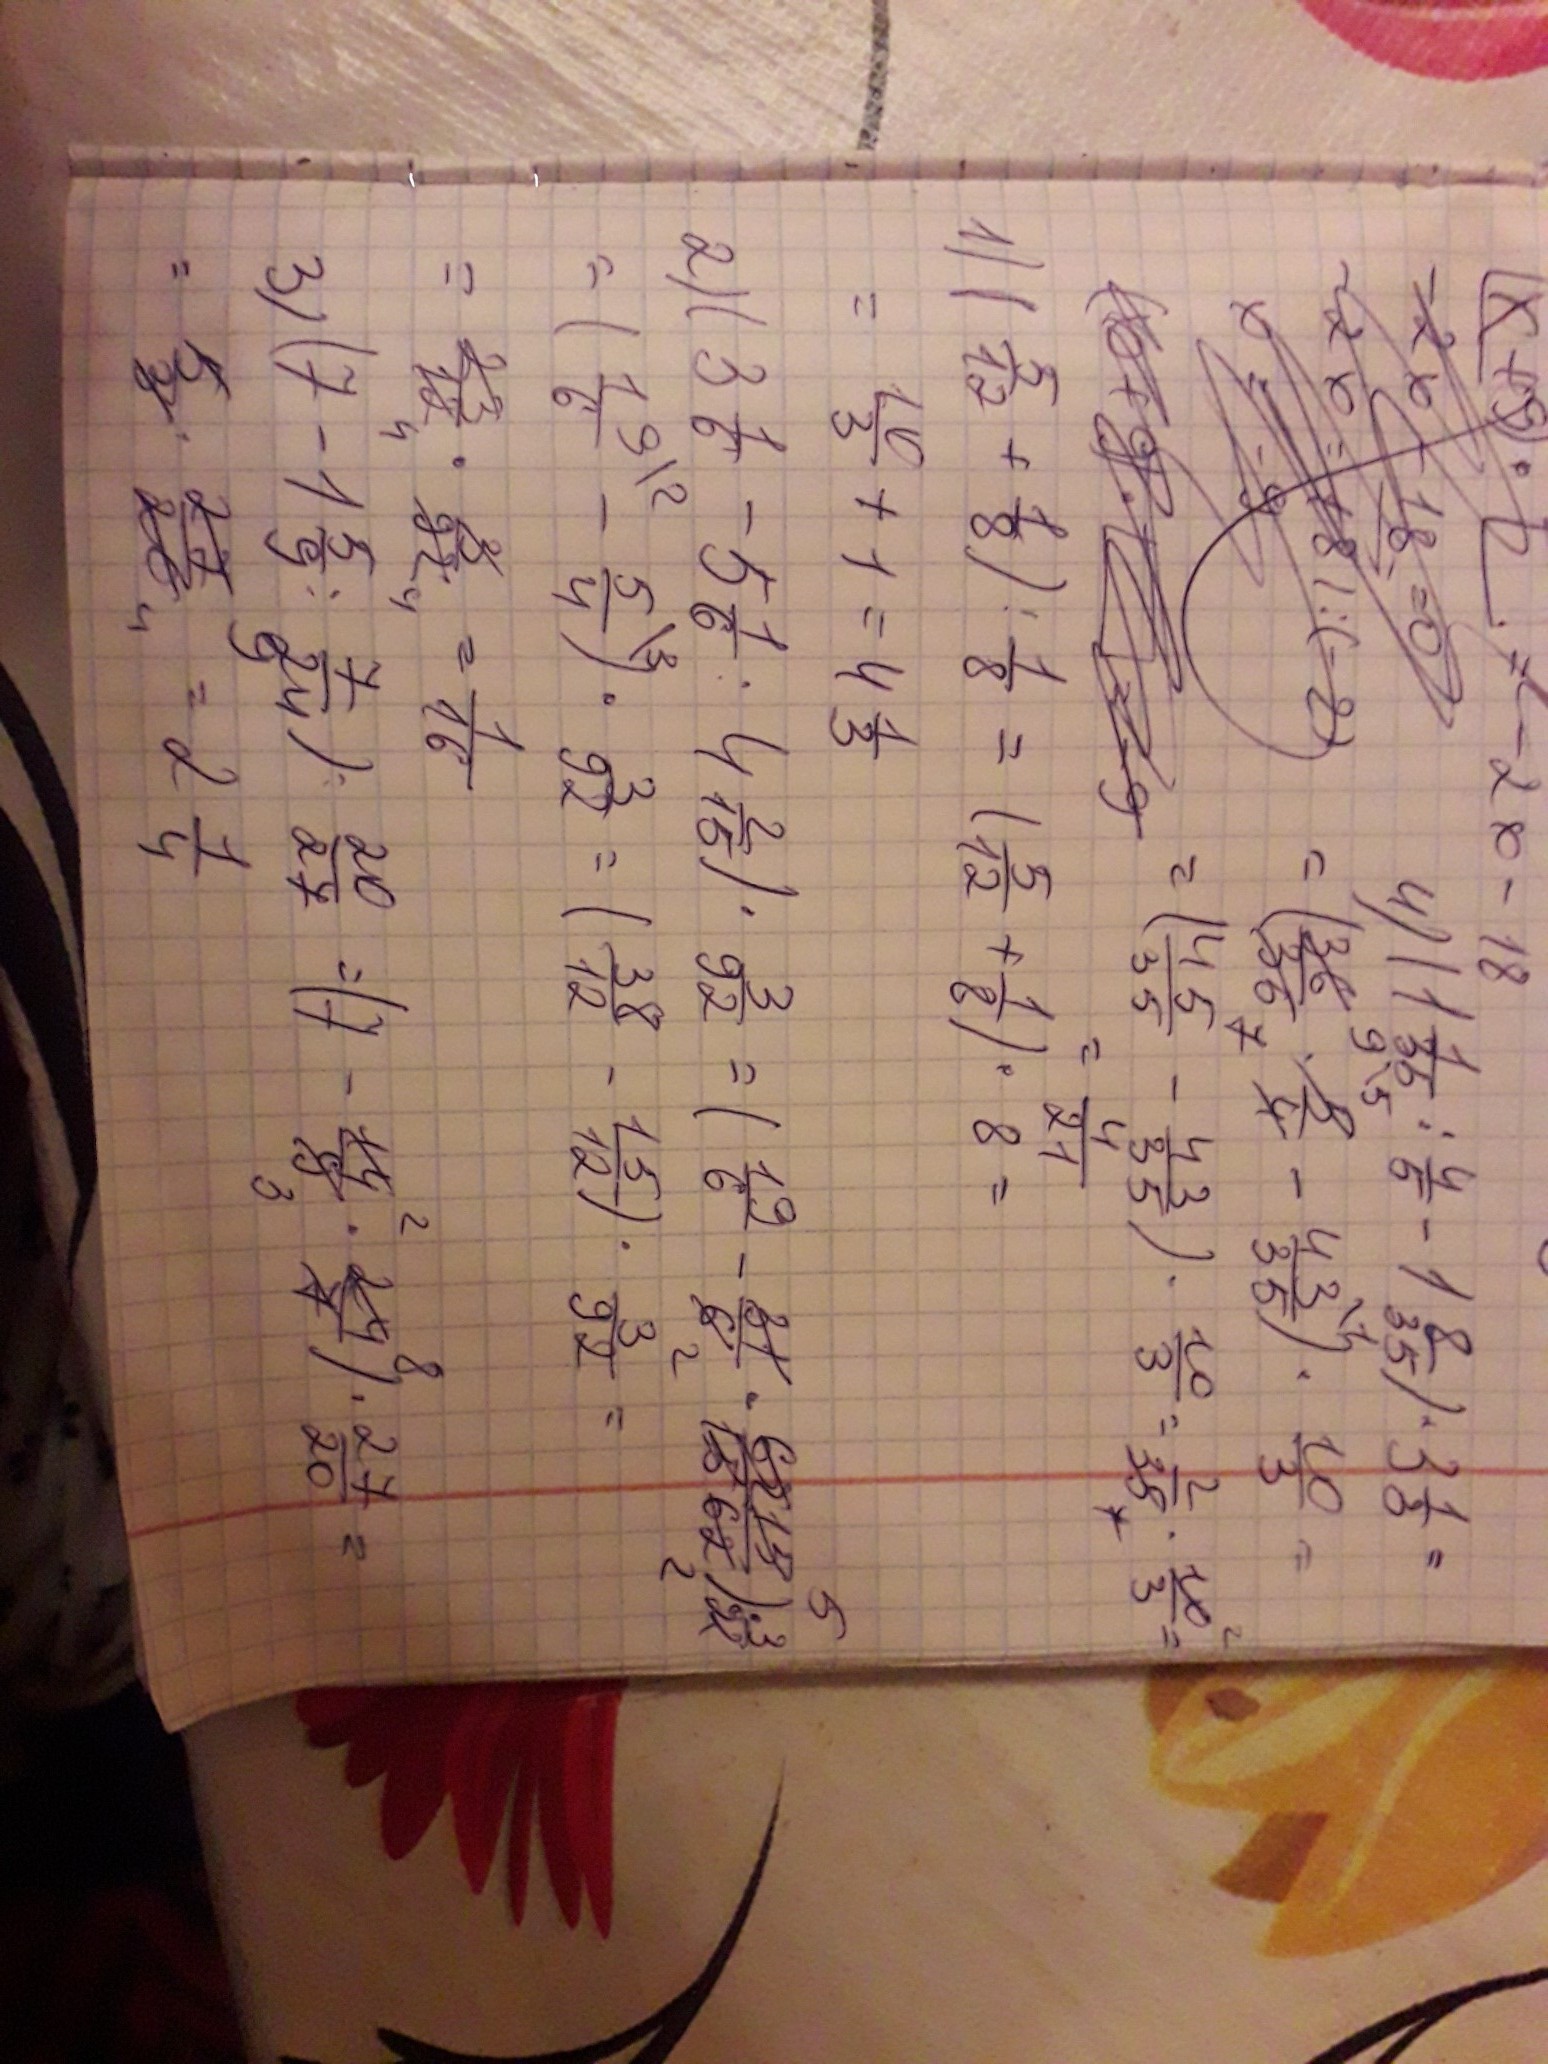 (x+9)·
-2x-18
-2x-18=0
-2x=18 |:(-2)
x=-9
4) (1 1/35 : 4/5 - 1 8/35) · 3 1/3 =
= (36/35 · 5/4 - 43/35) · 10/3 =
= (45/35 - 43/35) · 10/3 = 2/35 · 10/3 =
= 4/21
1) (5/12 + 1/8) : 1/8 = (5/12 + 1/8) · 8 =
= 10/3 + 1 = 4 1/3
2) (3 1/6 - 5 1/6 : 4 2/15) · 3/92 = (19/6 - 31/6 · 15/62) · 3/92
= (19/6 - 5/4) · 3/92 = (38/12 - 15/12) · 3/92 =
= 23/12 · 3/92 = 1/16
3) (7 - 1 5/9 : 7/24) : 20/27 = (7 - 14/9 · 24/7) · 27/20 =
= 5/3 · 27/20 = 2 1/4